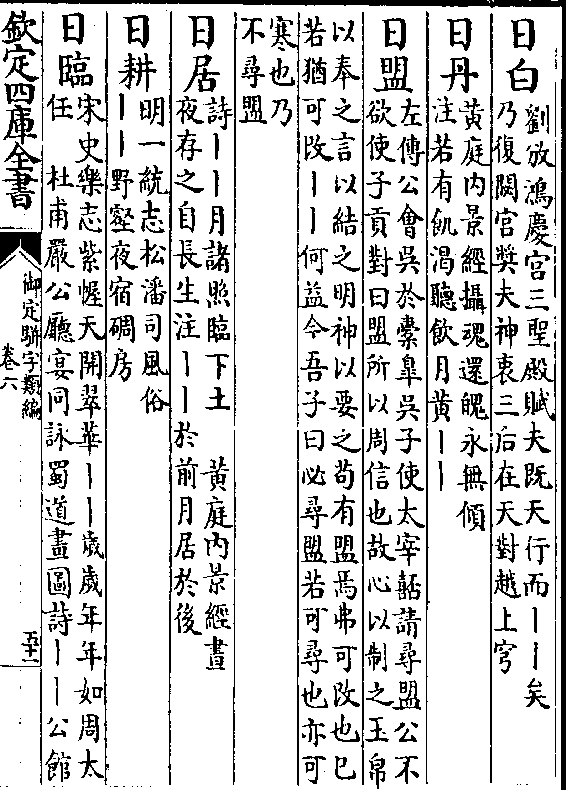 日白
劉攽鴻慶宫三聖殿賦夫既天行而丨丨矣
乃復闕官奬夫神衷三后在天對越上穹
日丹
黄庭内景經攝魂還魄永無傾
注若有飢渴聽飲月黄丨丨
日盟
左傳公會吳於橐臯吳子使太宰嚭請尋盟公不
欲使子貢對曰盟所以周信也故心以制之玉帛
以奉之言以結之明神以要之苟有盟焉弗可改也已
若猶可改丨丨何益今吾子曰必尋盟若可尋也亦可
寒也乃
不尋盟
日居
詩丨丨月諸照臨下土 黄庭内景經晝
夜存之自長生注丨丨於前月居於後
日耕
明一統志松潘司風俗
丨丨野壑夜宿碉房
日臨
宋史樂志紫幄天開翠華丨丨歲歲年年如周太
任 杜甫嚴公廳宴同詠蜀道畫圖詩丨丨公館
欽定四庫全書
御定駢字類編
卷六
五十一